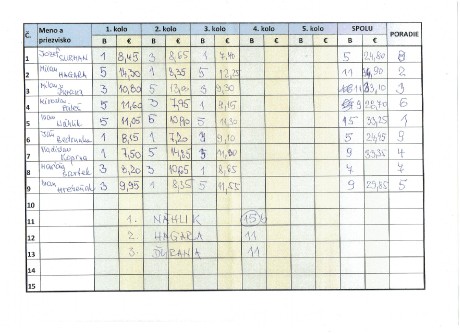 Č. Meno a priezvisko 1. kolo 2. kolo 3. kolo 4. kolo 5. kolo SPOLU PORADIE
B € B € B € B € B € B €
1 Jozef 1 8,45 3 8,65 1 7,70 5 24,80 8
2 Milan HAGARA 5 14,30 1 8,35 5 12,25 11 34,90 2
3 Milan 3 10,80 5 3 9,30 11 33,10 3
4 5 11,60 3 7,95 1 9,15 9 28,70 6
5 Ivan Náhlik 5 11,05 5 10,90 5 11,30 15 33,25 1
6 1 8,15 1 7,20 3 9,10 5 24,45 9
7 Ladislav 1 7,50 5 14,35 3 9 33,35 4
8 Bartek 3 8,20 3 10,65 1 8,85 7
9 Ivan 3 9,95 1 8,35 5 11,55 9 29,85 5
10
11 1. NÁHLIK 15
12 2. HAGARA 11
13 3. ŠURANA 11
14
15